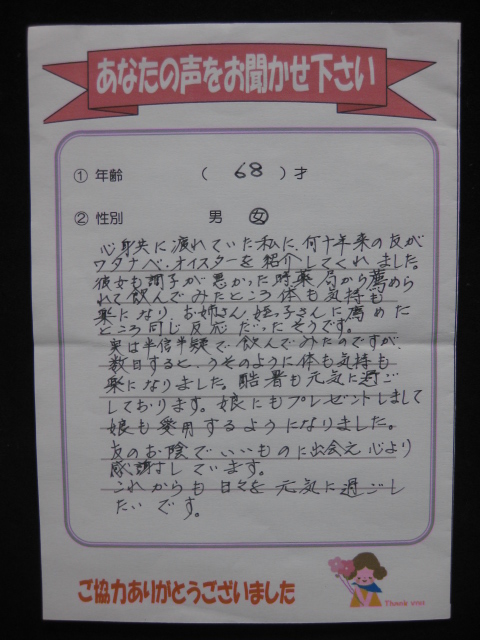 あなたの声をお聞かせ下さい
① 年齢 ( 68 ) 才
② 性別 男 女
心身共に疲れていた私に、何十年来の友が
ワタナベ・オイスターを紹介してくれました。
彼女も調子が悪かった時薬局から薦めら
れて飲んでみたところ体も気持も
楽になり、お姉さん、姪っ子さんに薦めた
ところ同じ反応だったそうです。
実は半信半疑で飲んでみたのですが、
数日すると、うそのように体も気持も
楽になりました。酷暑も元気に過ご
しております。娘にもプレゼントしまして
娘も愛用するようになりました。
友のお陰でいいものに出会え心より
感謝しています。
これからも日々を元気に過ごし
たいです。
ご協力ありがとうございました
Thank you